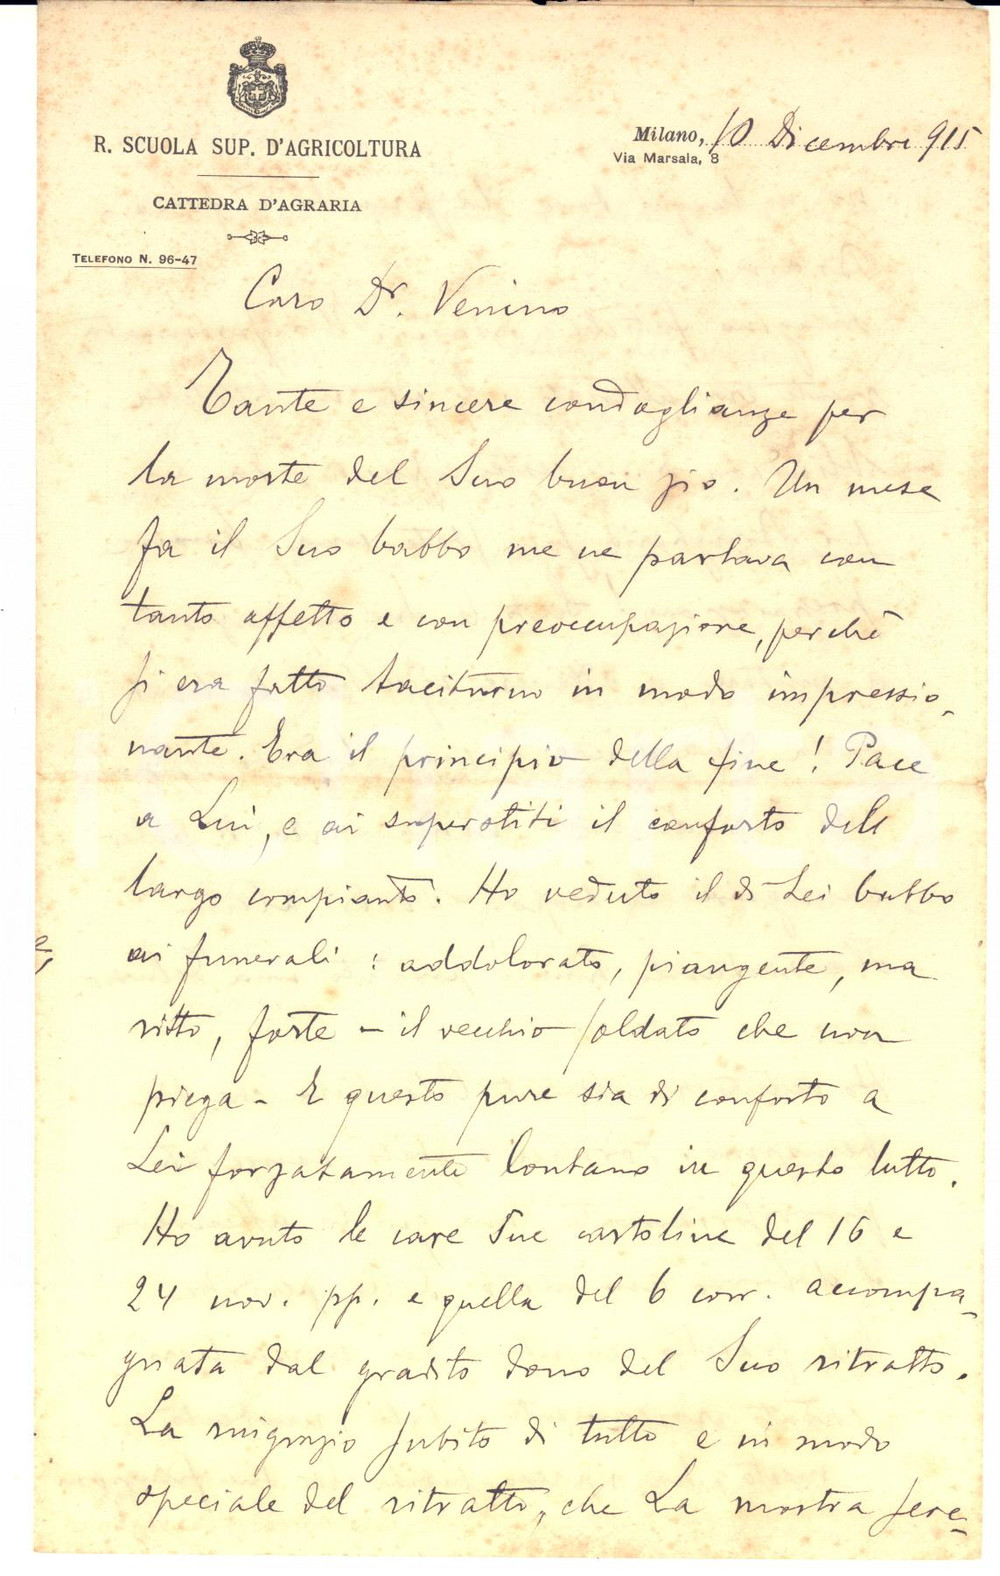 R. SCUOLA SUP. D'AGRICOLTURA
CATTEDRA D'AGRARIA
TELEFONO N. 96-47
Milano, 10 Dicembre 915
Via Marsala, 8
Caro Dr. Venino
Tante e sincere condoglianze per
la morte del Suo buon zio. Un mese
fa il Suo babbo me ne parlava con
tanto affetto e con preoccupazione, perchè
si era fatto taciturno in modo impressio-
nante. Era il principio della fine! Pace
a Lui, e ai superstiti il conforto del
largo compianto. Ho veduto il di Lei babbo
ai funerali: addolorato, piangente, ma
ritto, forte - il vecchio soldato che non
piega - E questo pure sia di conforto a
Lei forzatamente lontano in questo lutto.
Ho avuto le care Sue cartoline del 16 e
24 nov. pp. e quella del 6 corr. accompa-
gnata dal gradito dono del Suo ritratto.
La ringrazio subito di tutto e in modo
speciale del ritratto, che La mostra sere-